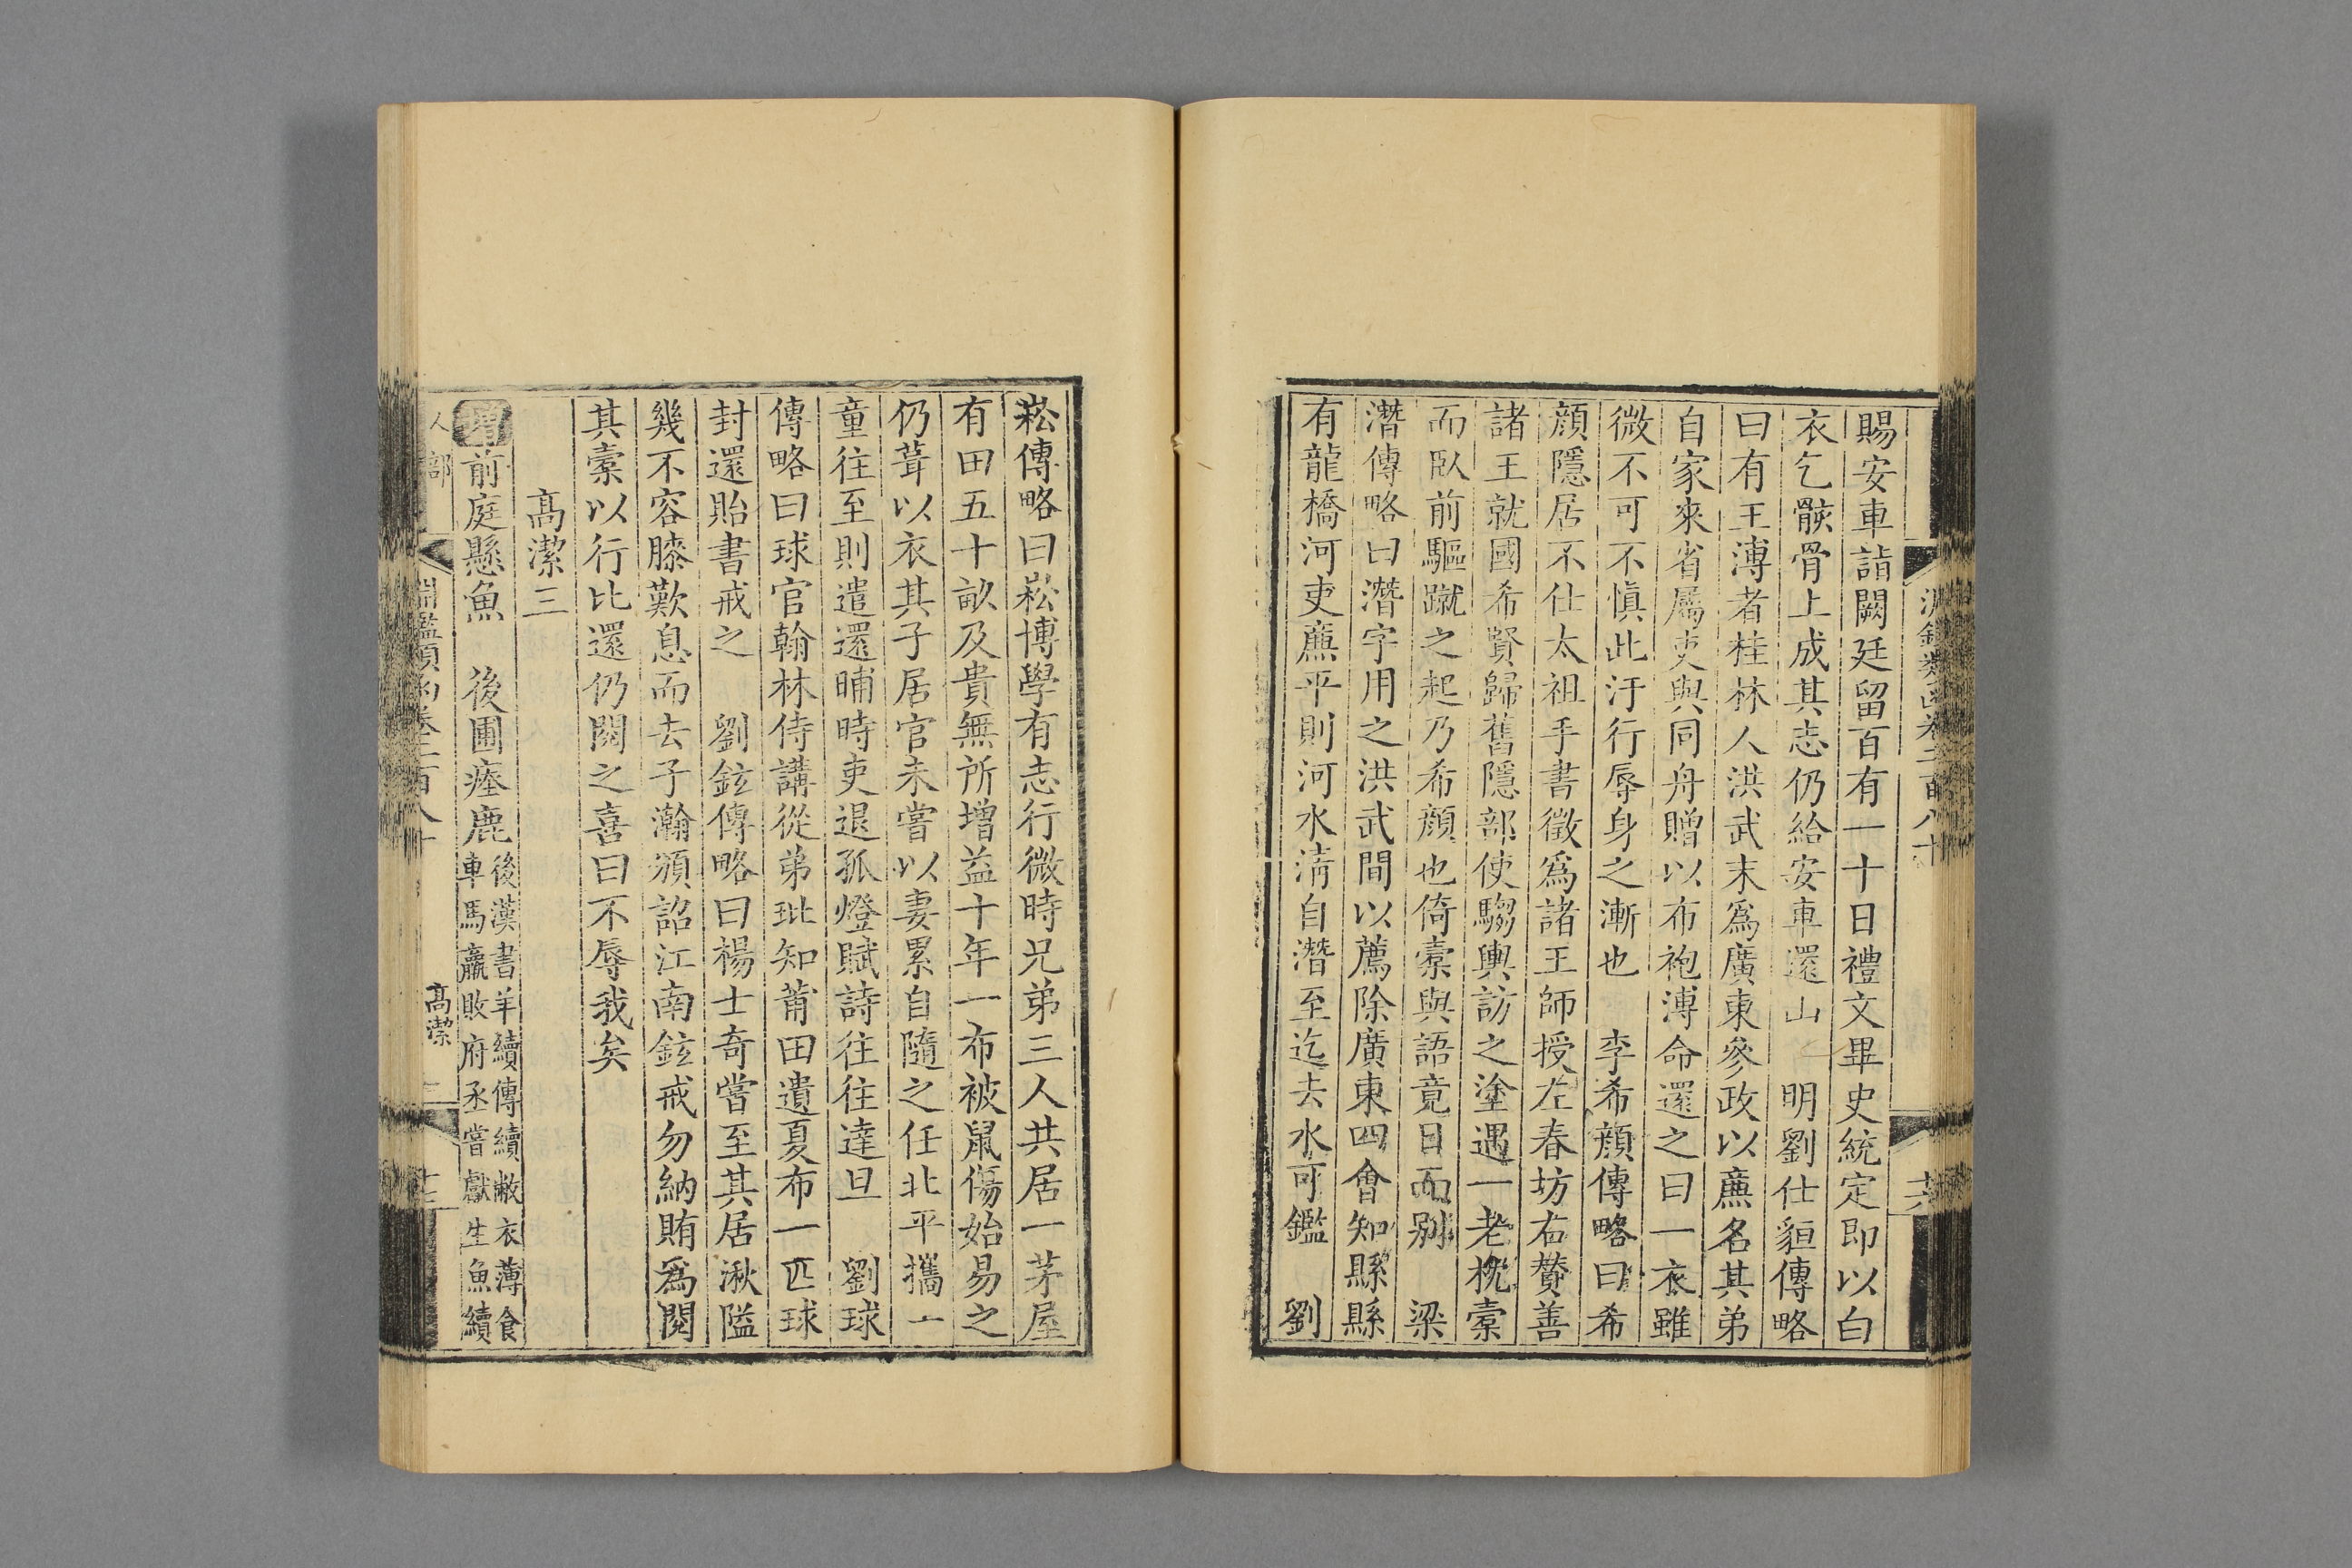 賜安車詣闕廷留百有一十日禮文畢史統定即以白
衣乞骸骨上成其志仍給安車還山 明劉仕貆傳略
曰有王溥者桂林人洪武末爲廣東參政以廉名其弟
自家來省屬吏與同舟贈以布袍溥命還之曰一衣雖
微不可不慎此汙行辱身之漸也 李希顔傳略曰希
顔隱居不仕太祖手書徵爲諸王師授左春坊右贊善
諸王就國希賢歸舊隱部使騶輿訪之塗遇一老枕橐
而臥前驅蹴之起乃希顔也倚橐與語竟日而别 梁
潛傳略曰潛字用之洪武間以薦除廣東四會知縣縣
有龍橋河吏廉平則河水淸自潛至迄去水可鑑 劉
崧傳略曰崧博學有志行微時兄弟三人共居一茅屋
有田五十畝及貴無所增益十年一布被鼠傷始易之
仍葺以衣其子居官未嘗以妻累自隨之任北平攜一
童往至則遣還晡時吏退孤燈賦詩往往達旦 劉球
傳略曰球官翰林侍講從弟玭知莆田遺夏布一匹球
封還貽書戒之 劉鉉傳略曰楊士奇嘗至其居湫隘
幾不容膝歎息而去子瀚頒詔江南鉉戒勿納賄爲閱
其橐以行比還仍閱之喜曰不辱我矣
高潔三
增前庭懸魚 後圃瘞鹿後漢書羊續傳續敝衣薄食
車馬羸敗府丞嘗獻生魚續
人部
淵鑑類函卷二百八十
高潔 三